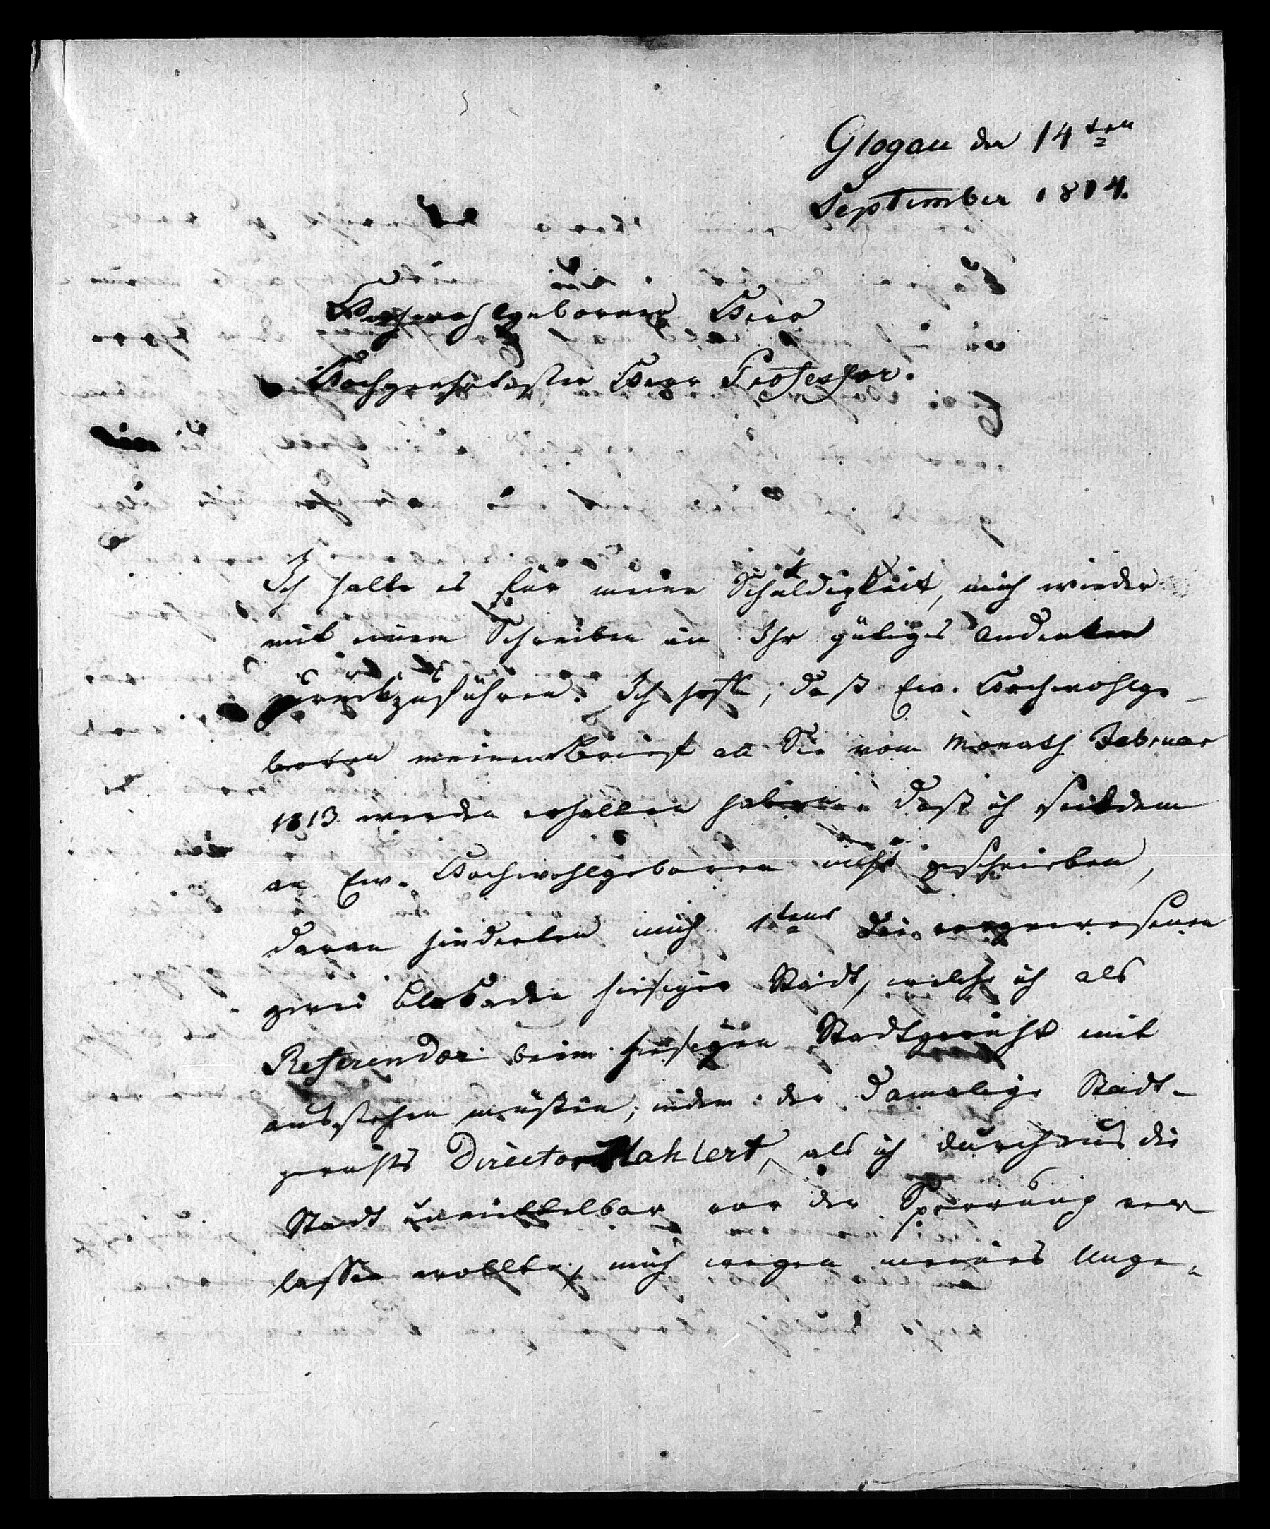 Glogau den 14ten
September 1814.
Hochwohlgeborner Herr
Hochgeehrtester Herr Professor.
Ich halte es für meine Schuldigkeit, mich wieder
mit einem Schreiben in Ihr gütiges Andenken
zurückzuführen. Ich hoffe, daß Ew. Hochwohlge-
boren meinen Brief an Sie vom Monath Februar
1813 werden erhalten haben daß ich seitdem
an Ew. Hochwohlgeboren nicht geschrieben,
daran hinderten mich 1tens die
zwei Blokaden hiesiger Stadt, welche ich als
Referendar beim hiesigen Stadtgericht mit
ausstehen müßen, indem der damalige Stadt-
gerichts Director Mahlert, als ich durchaus die
Stadt unmittelbar vor der Sperrung ver
lassen wollte, mich wegen meines Unge-